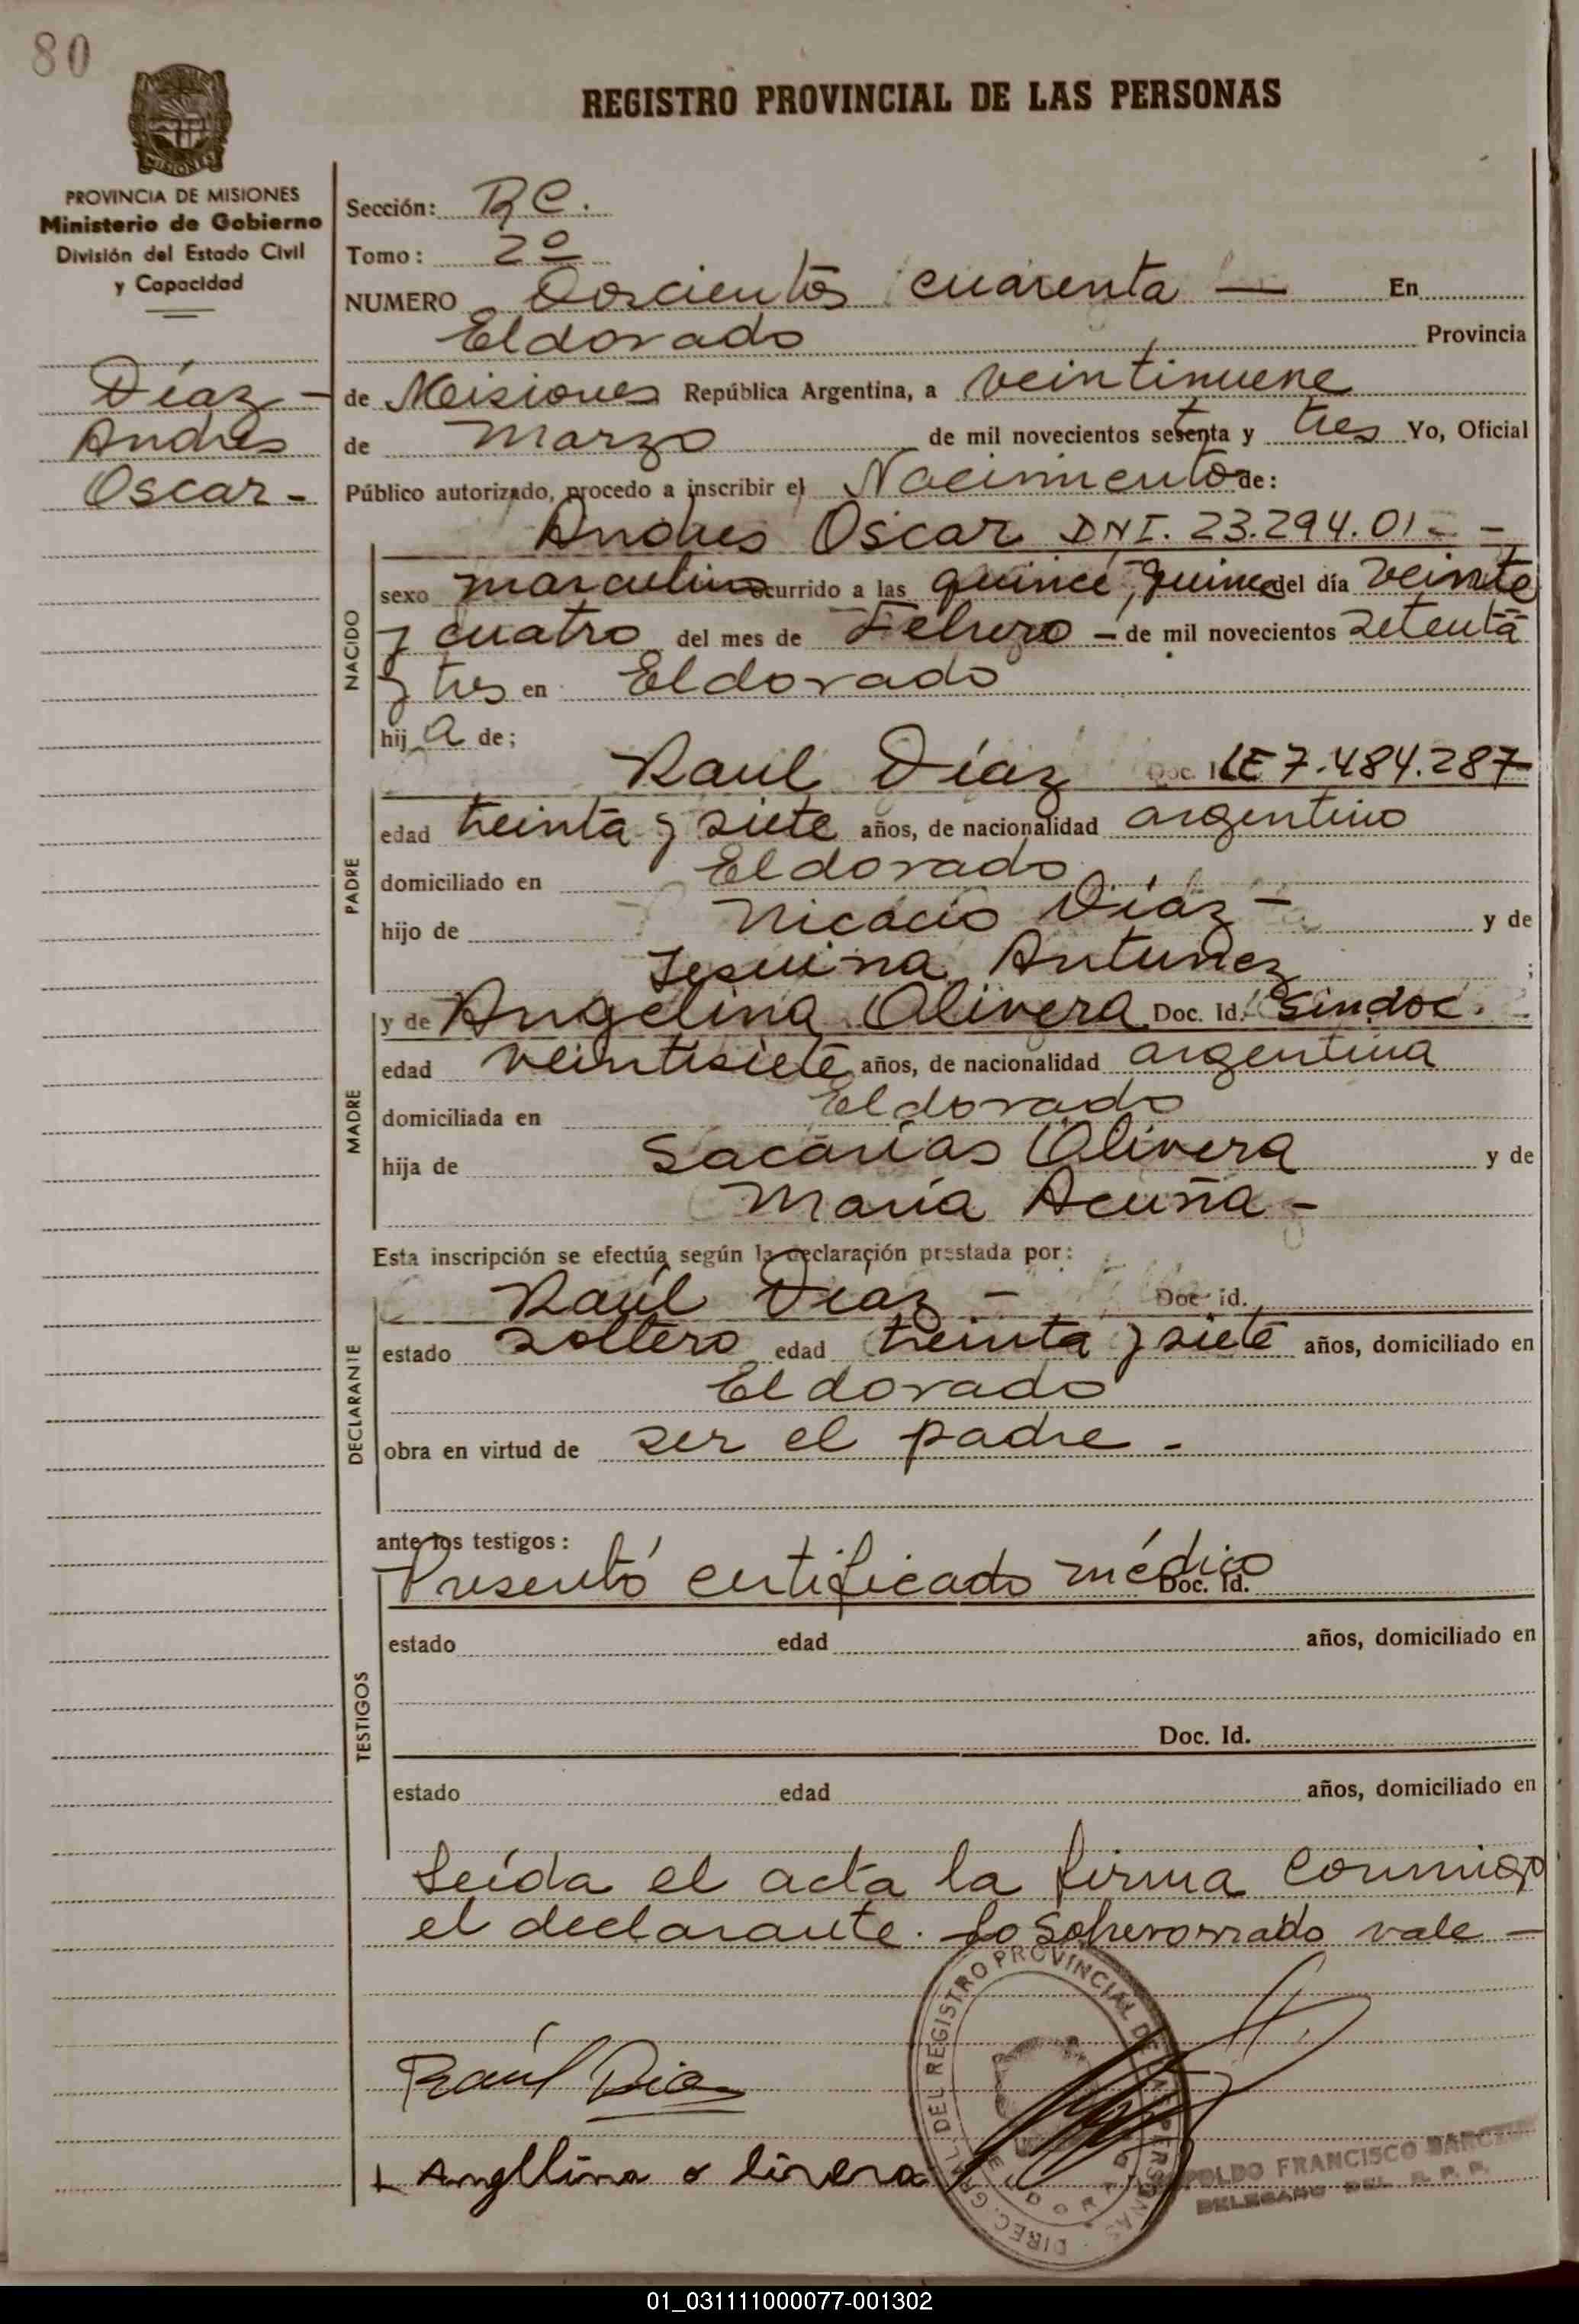 80
REGISTRO PROVINCIAL DE LAS PERSONAS
MISIONES
PROVINCIA DE MISIONES
Ministerio de Gobierno
División del Estado Civil
y Capacidad
Díaz -
Andres
Oscar -
Sección: RC.
Tomo: 2º
NUMERO Doscientos cuarenta — En
Eldorado Provincia
de Misiones República Argentina, a veintinueve
de Marzo de mil novecientos setenta y tres Yo, Oficial
Público autorizado, procedo a inscribir el Nacimiento de:
NACIDO
Andres Oscar DNI. 23.294.01- -
sexo masculino ocurrido a las quince, quince del día veinte
y cuatro del mes de Febrero - de mil novecientos setenta
y tres en Eldorado
hij a de;
PADRE
Raul Díaz Doc. I LE 7.484.287
edad treinta y siete años, de nacionalidad argentino
domiciliado en Eldorado
hijo de Nicacio Díaz - y de
Jesuina Antunez ;
MADRE
y de Angelina Olivera Doc. Id. Sindoc.
edad veintisiete años, de nacionalidad argentina
domiciliada en Eldorado
hija de Sacarías Olivera y de
María Acuña -
Esta inscripción se efectúa según la declaración prestada por:
DECLARANTE
Raúl Díaz - Doc. id.
estado soltero edad treinta y siete años, domiciliado en
Eldorado
obra en virtud de ser el padre -
ante los testigos:
TESTIGOS
Presentó certificado médico Doc. Id.
estado edad años, domiciliado en
Doc. Id.
estado edad años, domiciliado en
Leída el acta la firma conmigo
el declarante. Lo Sobrerorrado vale -
DIREC. GRAL. DEL REGISTRO PROVINCIAL DE LAS PERSONAS
ELDORADO
Raúl Dias
+ Angllina o livera
POLDO FRANCISCO
DELEGADO DEL R. P. P.
01_031111000077-001302